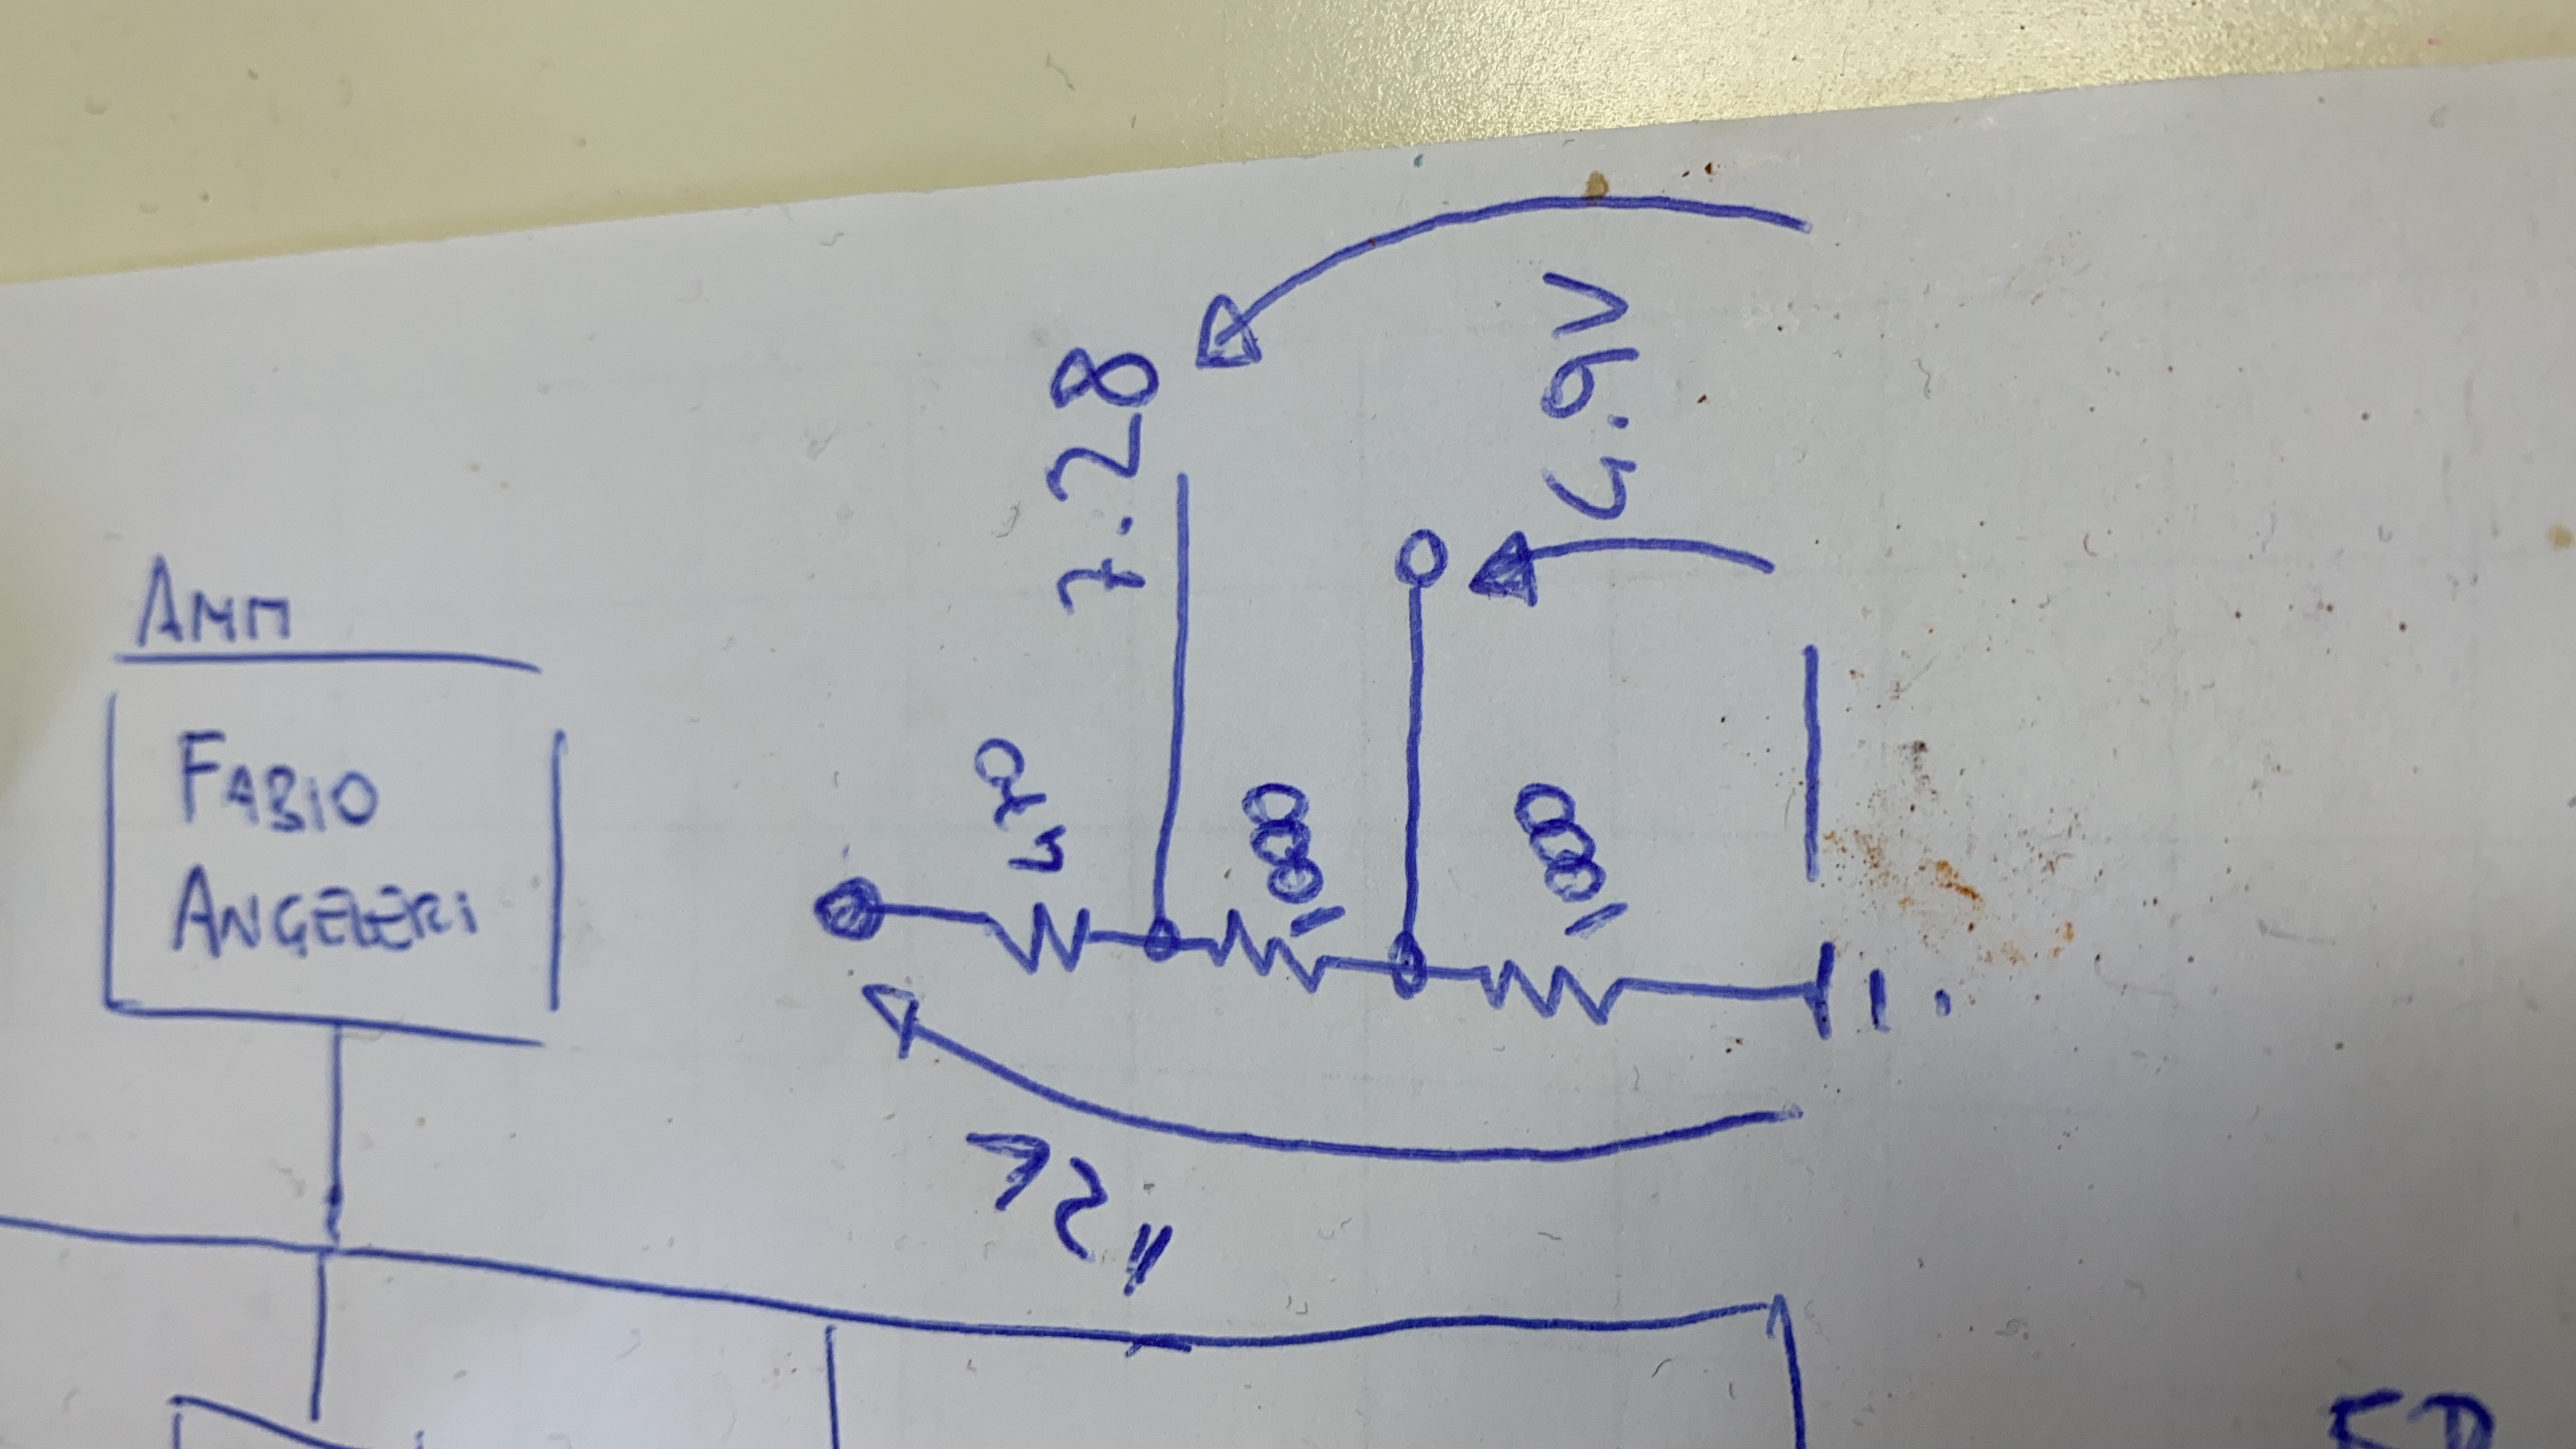 AMM
FABIO
ANGELERI
12V
470
7.28
1000
1000
4.9V